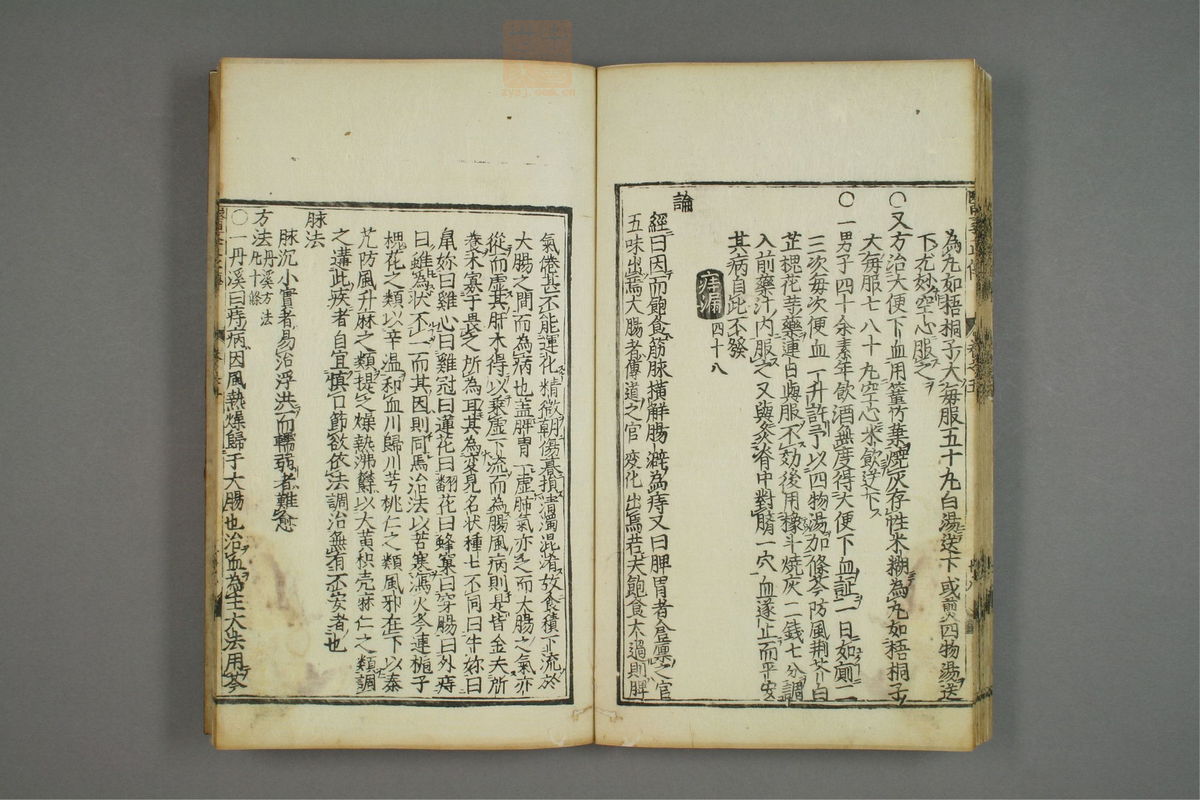 為丸如梧桐子大每服五十丸白湯送下或煎四物湯送
下尤妙空心服之
○又方治大便下血用箬竹葉燒灰存性米糊為丸如梧桐子
大每服七八十丸空心米飲送下
○一男子四十余素年飲酒無度得大便下血証一日如廁二
三次每次便血一升許予以四物湯加條芩防風荆芥白
芷槐花等藥連日與服不効後用橡斗燒灰二錢七分調
入前藥汁內服之又與灸脊中對臍一穴血遂止而平安
其病自此不發
痔漏 四十八
論
經曰因而飽食筋脉橫解腸澼為痔又曰脾胃者倉廩之官
五味出焉大腸者傳道之官變化出焉若夫飽食太過則脾
氣倦甚不能運化精微朝傷暮損清濁混淆故食積下流於
大腸之間而為病也蓋脾胃一虛肺氣亦乏而大腸之氣亦
從而虛其肝木得以乘虛下流而為腸風病則是皆金失所
養木寡于畏之所為耳其為变見名状種七不同曰牛奶曰
鼠奶曰雞心曰雞冠曰蓮花曰翻花曰蜂窠曰穿腸曰外痔
曰雖為状不一而其因則同焉治法以苦寒瀉火芩連梔子
槐花之類以辛温和血川歸川芎桃仁之類風邪在下以秦
艽防風升麻之類提之燥熱沸欝以大黄枳壳麻仁之類調
之遘此疾者自宜慎口節慾依法調治無有不安者也
脉法
脉沉小實者易治浮洪而軟弱者難愈
方法 丹溪方法凡十條
○一丹溪曰痔病因風熱燥歸于大腸也治血為主大法用芩